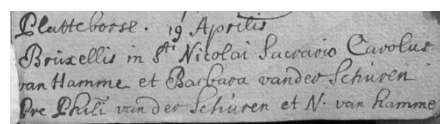 Platteborse. 19 Aprilis
Bruxellis in Sti Nicolai Sacrario Carolus
van Hamme et Barbara vander Schüren
Pre Phili van der Schüren et N. van hamme